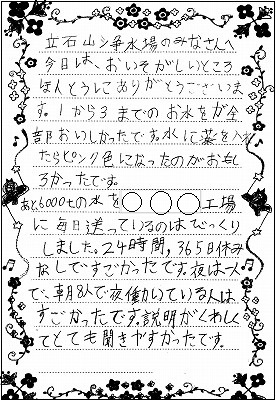 立石山浄水場のみなさんへ
今日は、おいそがしいところ
ほんとうにありがとうございま
す。1から3までのお水をが全
部おいしかったです。水に薬を入れ
たらピンク色になったのがおもし
ろかったです。
あと6000tの水を〇〇〇工場
に毎日送っているのはびっくり
しました。24時間,365日休み
なしですごかったです。夜は一人
で、朝8人で夜働いている人は
すごかったです。説明がくわしく
てとても聞きやすかったです。